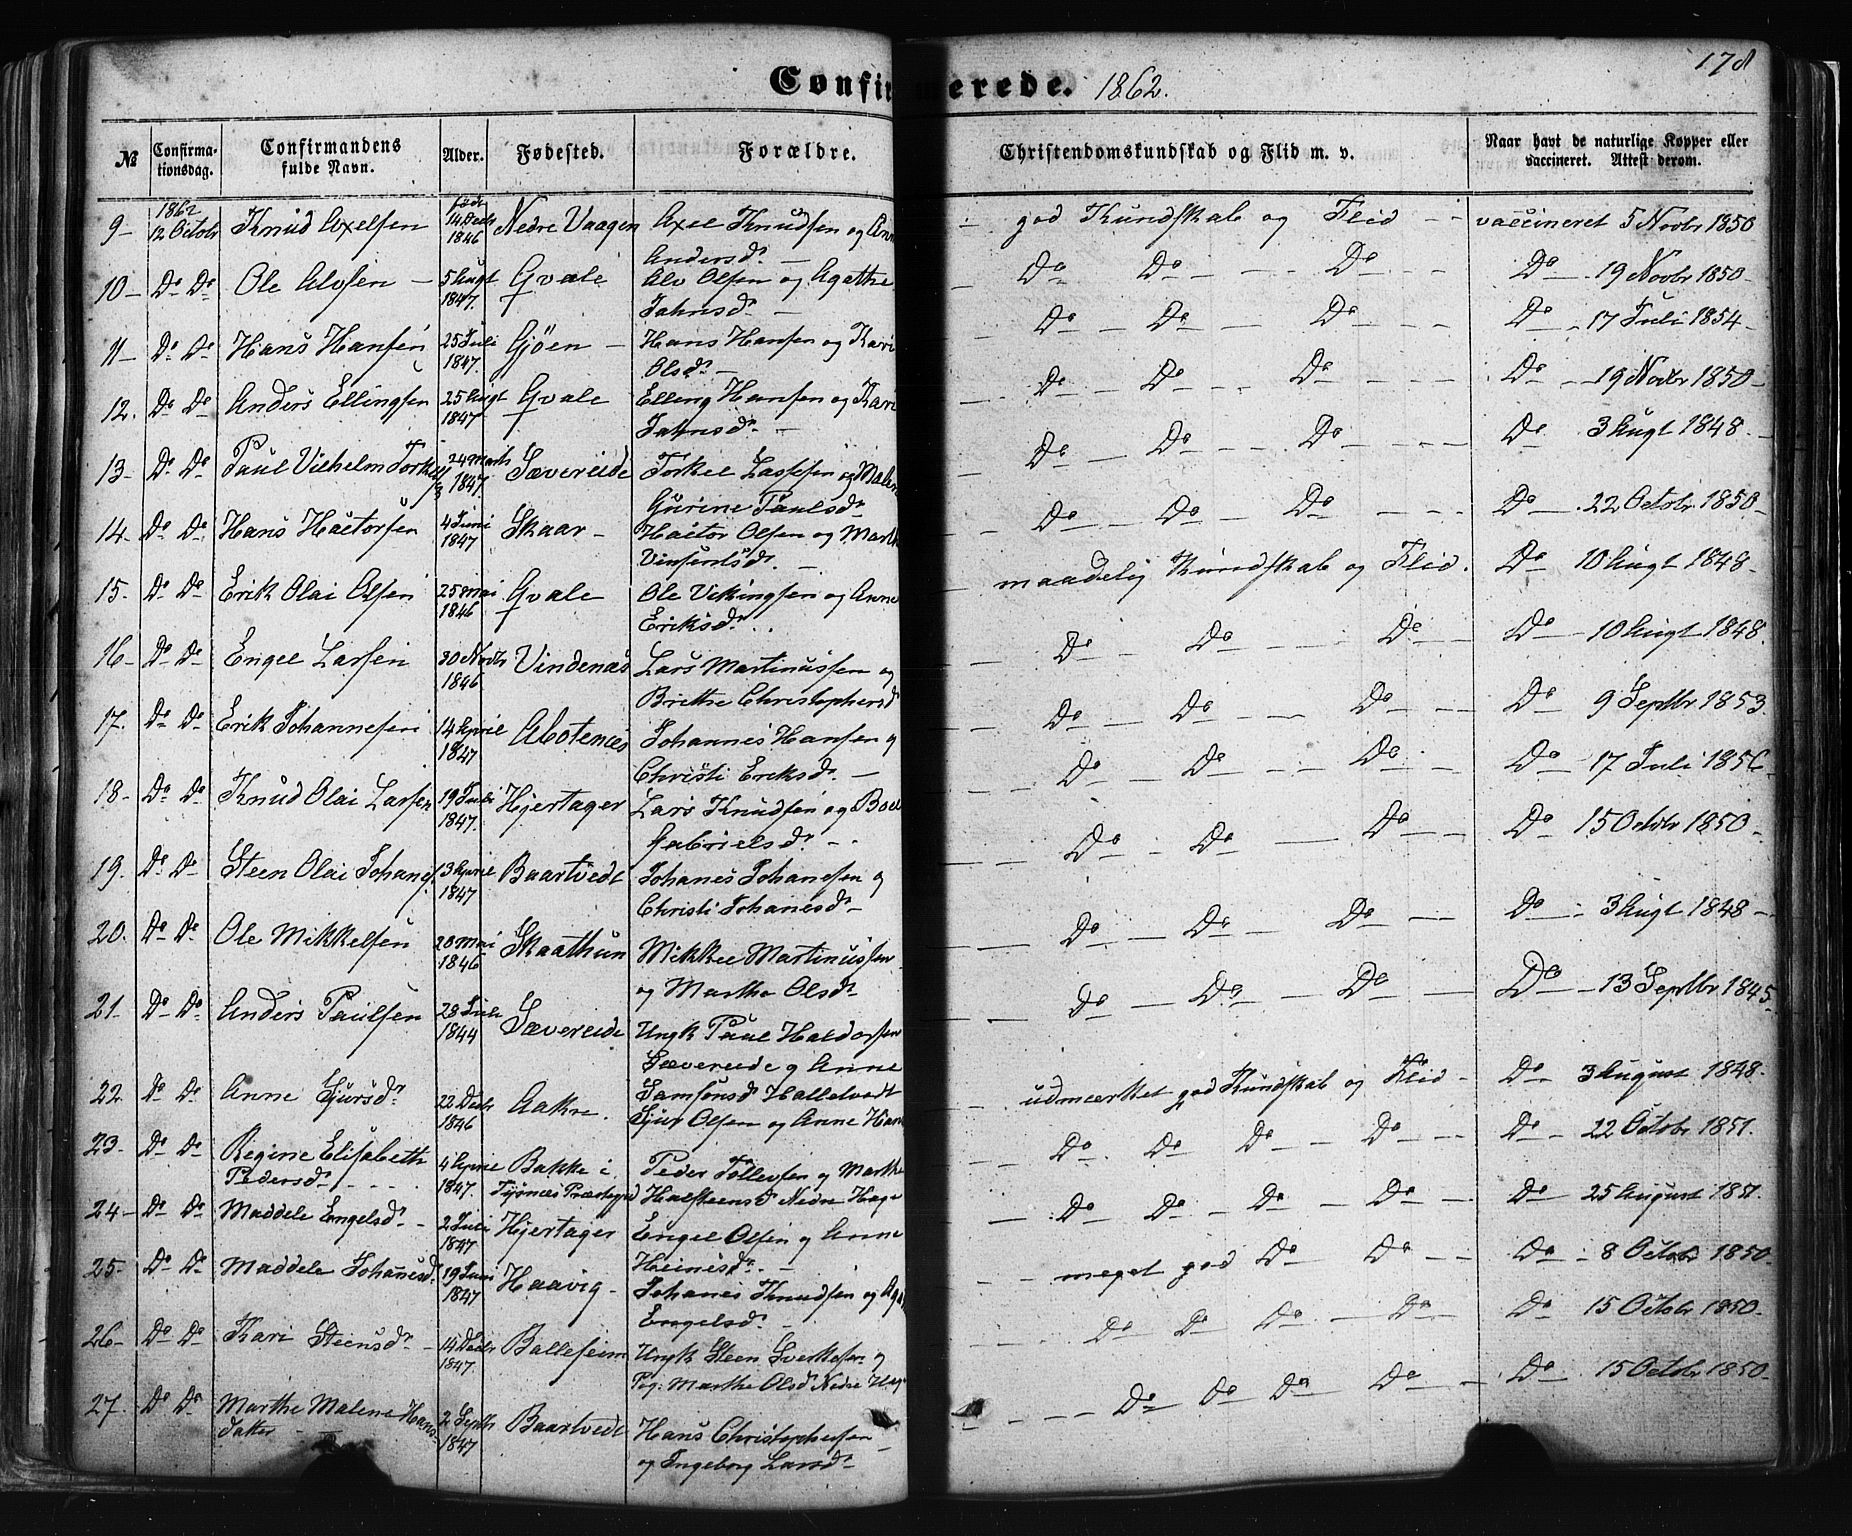 178
Confirmerede. 1862.
№ Confirmationsdag. Confirmandens fulde Navn. Alder. Fødested. Forældre. Christendomskundskab og Flid m. v. Naar havt de naturlige Kopper eller vaccineret. Attest derom.
9- 1862 12 Octobr Knud Axelsen født 14 Decbr 1846 Nedre Vaagen Axel Knudsen og Ann Andersdr - god Kundskab og Flid - - vaccineret 5 Novbr 1850
10- Do Do Ole Alvsen - 5 Augt 1847. Gvale Alv Olsen og Agathe Jahnsdr - Do Do - - Do - - Do - 19 Novbr 1850-
11- Do Do Hans Hansen 25 Juli 1847. Gjøen - Hans Hansen og Kari Olsdr - Do - Do - - Do - - Do - 17 Juli 1854-
12. Do Do Anders Ellingsen 25 Augt 1847 Gvale Elling Hansen og Kari Jahnsdr - Do - Do - Do - - Do - 19 Novbr 1850-
13- Do Do Paul Vilhelm Torkels 24 Marts 1847. Sævereide Torkel Lassesen og Malene Gurine Paulsdr Do - Do - - Do - - Do 3 Augt 1848-
14- Do Do Hans Hactorsen 4 Juni 1847 Skaar - Hactor Olsen og Marth Vinsentsdr. - Do - Do - Do - - Do - 22 Octobr 1850-
15. Do Do Erik Olai Olsen 25 Mai 1846 Gvale Ole Vikingsen og Anne Eriksdr. maadelig Kundskab og Flid. Do - 10 Augt 1848-
16- Do Do Engel Larsen 30 Novbr 1846 Vindenæs Lars Martinussen og Brithe Christophersd Do - Do - - Do - Do - 10 Augt 1848.
17. Do Do Erik Johannesen 14 April 1847 Abotenæs Johannes Hansen og Christi Eriksdr - Do - Do - - Do - - Do - 9 Septbr 1853
18- Do Do Knud Olai Larsen 19 Juli 1847. Hjertager Lars Knudsen og Boel Gabrielsdr - Do - Do - - Do - - Do - 17 Juli 1856-
19. Do Do Steen Olai Johanes 13 April 1847 Baartvedt Johanes Johanesen og Christi Johanesdr - Do - Do - Do - - Do - 15 Octobr 1850-
20. Do Do Ole Mikkelsen 20 Mai 1846 Skaathun Mikkel Martinussen og Martha Olsdr Do - Do - Do - - Do - 3 Augt 1848-
21- Do Do Anders Paulsen 28 Juli 1844 Sævereide Ungk Paul Haldorsen Sævereide og Anne Samsonsd Hallelvedt Do - Do - Do - Do - 13 Septbr 1845
22. Do Do Anne Sjursdr 22 Decbr 1846 Aakre. Sjur Olsen og Anne Hans udmærket god Kundskab og Flid - Do - 3 August 1848-
23- Do Do Regine Elisabeth Pedersdr - 4 April 1847. Bakke i Tysnæs Præstegd Peder Tollevsen og Marthe Halsteensd Nedre Hage Do - Do Do - Do - - Do - 22 Octobr 1851.
24- Do Do Maddele Engelsdr - 2 Juli 1847 Hjertager Engel Olsen og Anne Heinesdr. - Do - Do - Do - Do - - Do - 25 August 1851.
25- Do Do Maddele Johanesd 19 Juni 1847 Haavig - Johanes Knudsen og Aga Engelsdr - meget god Do - Do - - Do - 8 Octobr 1850-
26- Do Do Kari Steensdr - 14 Decbr 1847. Balleseim Ungk Steen Sverkesen og Pog: Marthe Olsd Nedre Hage Do - Do - Do - Do - Do - 15 Octobr 1850-
27. Do Do Marthe Malene Hans datter - 2 Septbr 1847 Baartvedt Hans Christophersen og Ingeborg Larsdr Do - Do - Do - Do - - Do - 15 Octobr 1850-